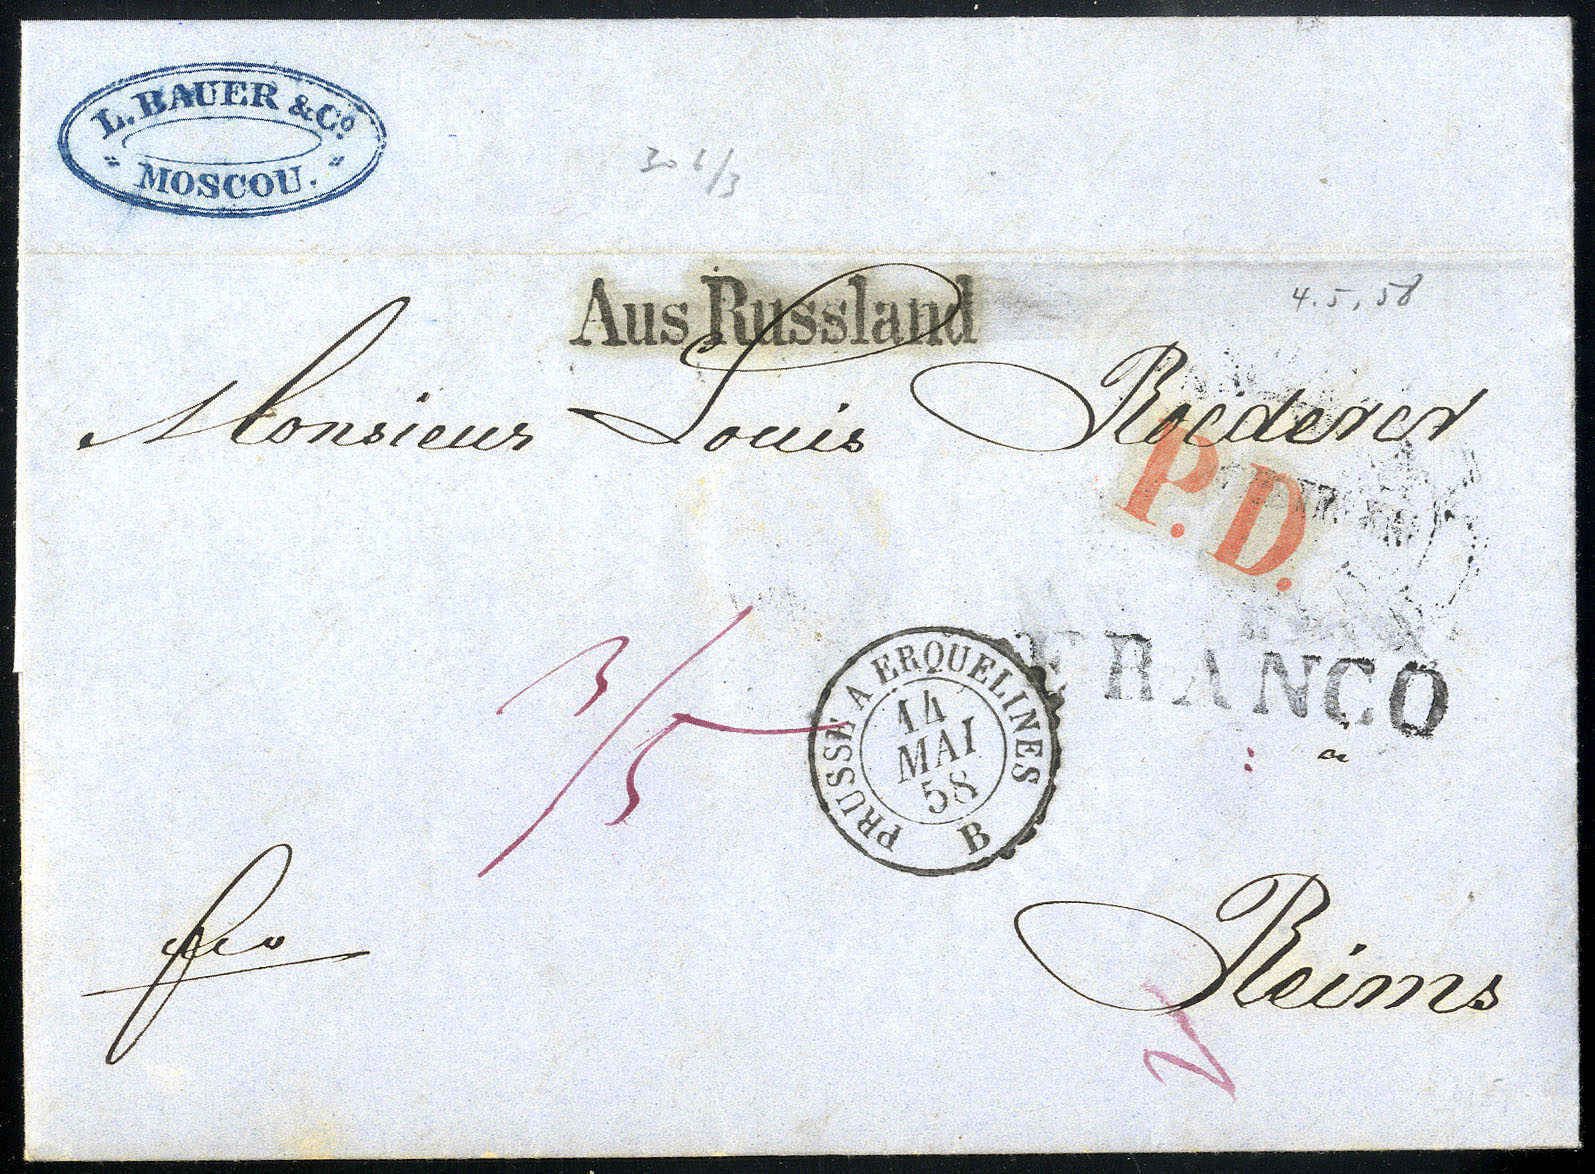 L. BAUER & Cº
" MOSCOU. "
30 6/3
Aus Russland
4.5.58
Monsieur Louis Roederer
P.D.
FRANCO
3/5
PRUSSE A ERQUELINES
14
MAI
58
B
fco
Reims